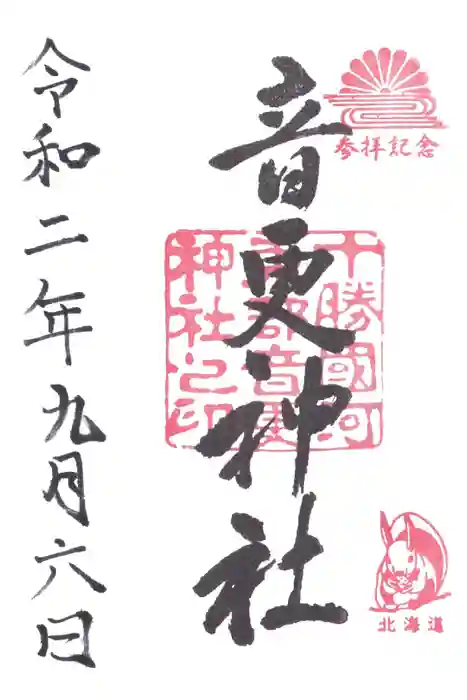 参拝記念
音更神社
十勝國河
東郡音更
神社之印
北海道
令和二年九月六日